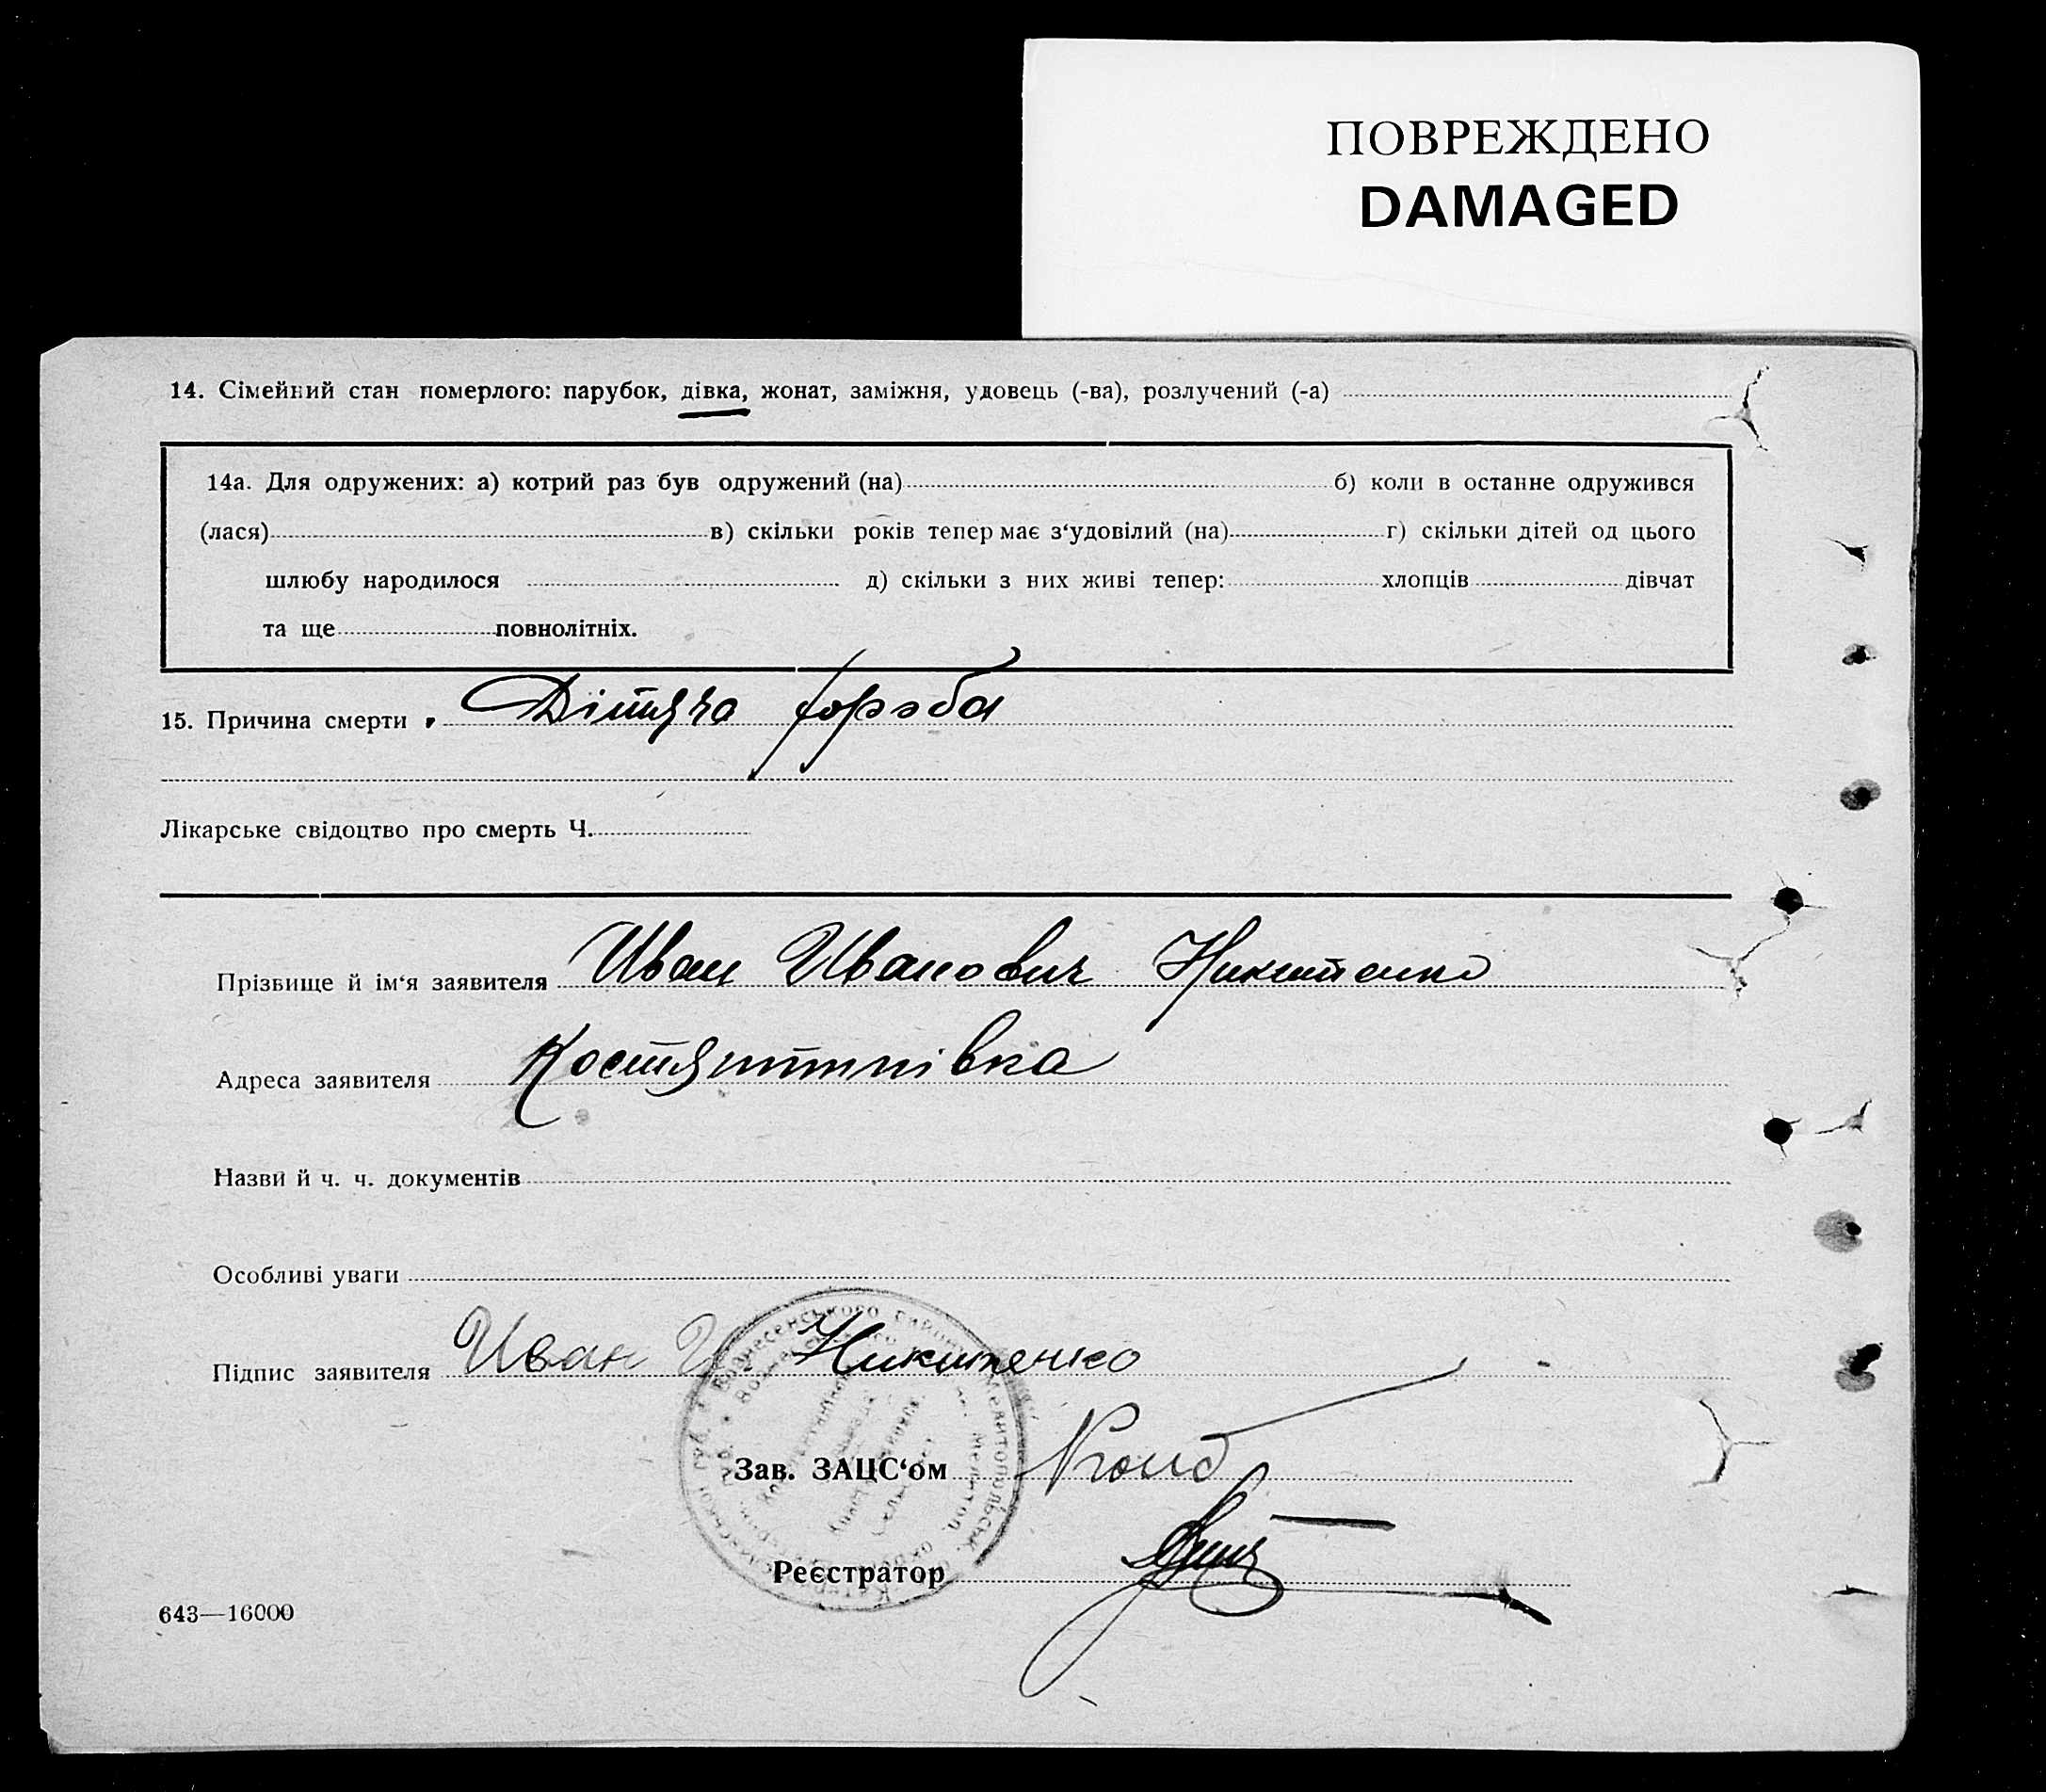 ПОВРЕЖДЕНО
DAMAGED
14. Сімейний стан померлого: парубок, дівка, жонат, заміжня, удовець (-ва), розлучений (-а)
14а. Для одружених: а) котрий раз був одружений (на) б) коли в останне одружився
(лася) в) скільки років тепер має з‘удовілий (на) г) скільки дітей од цього
шлюбу народилося д) скільки з них живі тепер: хлопців дівчат
та ще повнолітніх.
15. Причина смерти Дітяча хороба
Лікарське свідоцтво про смерть Ч.
Прізвище й ім‘я заявителя Иван Иванович Никитенко
Адреса заявителя Костянтинівка
Назви й ч. ч. документів
Особливі уваги
Підпис заявителя Иван И. Никитенко
Зав. ЗАЦС‘ом
Реєстратор
643—16000